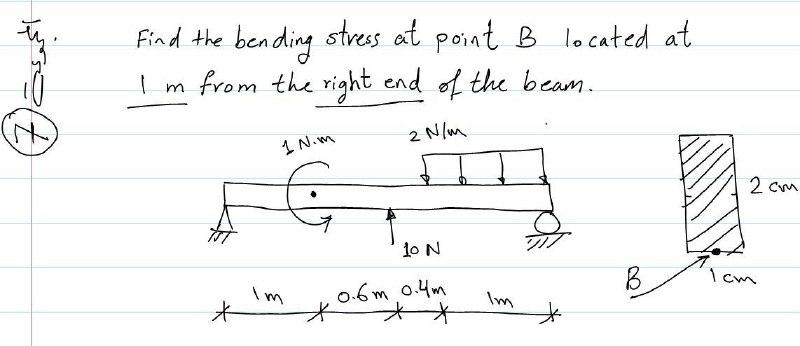 Find the bending stress at point B located at
1 m from the right end of the beam.
1 N.m
2 N/m
10 N
2 cm
B
1 cm
1m
0.6m
0.4m
1m